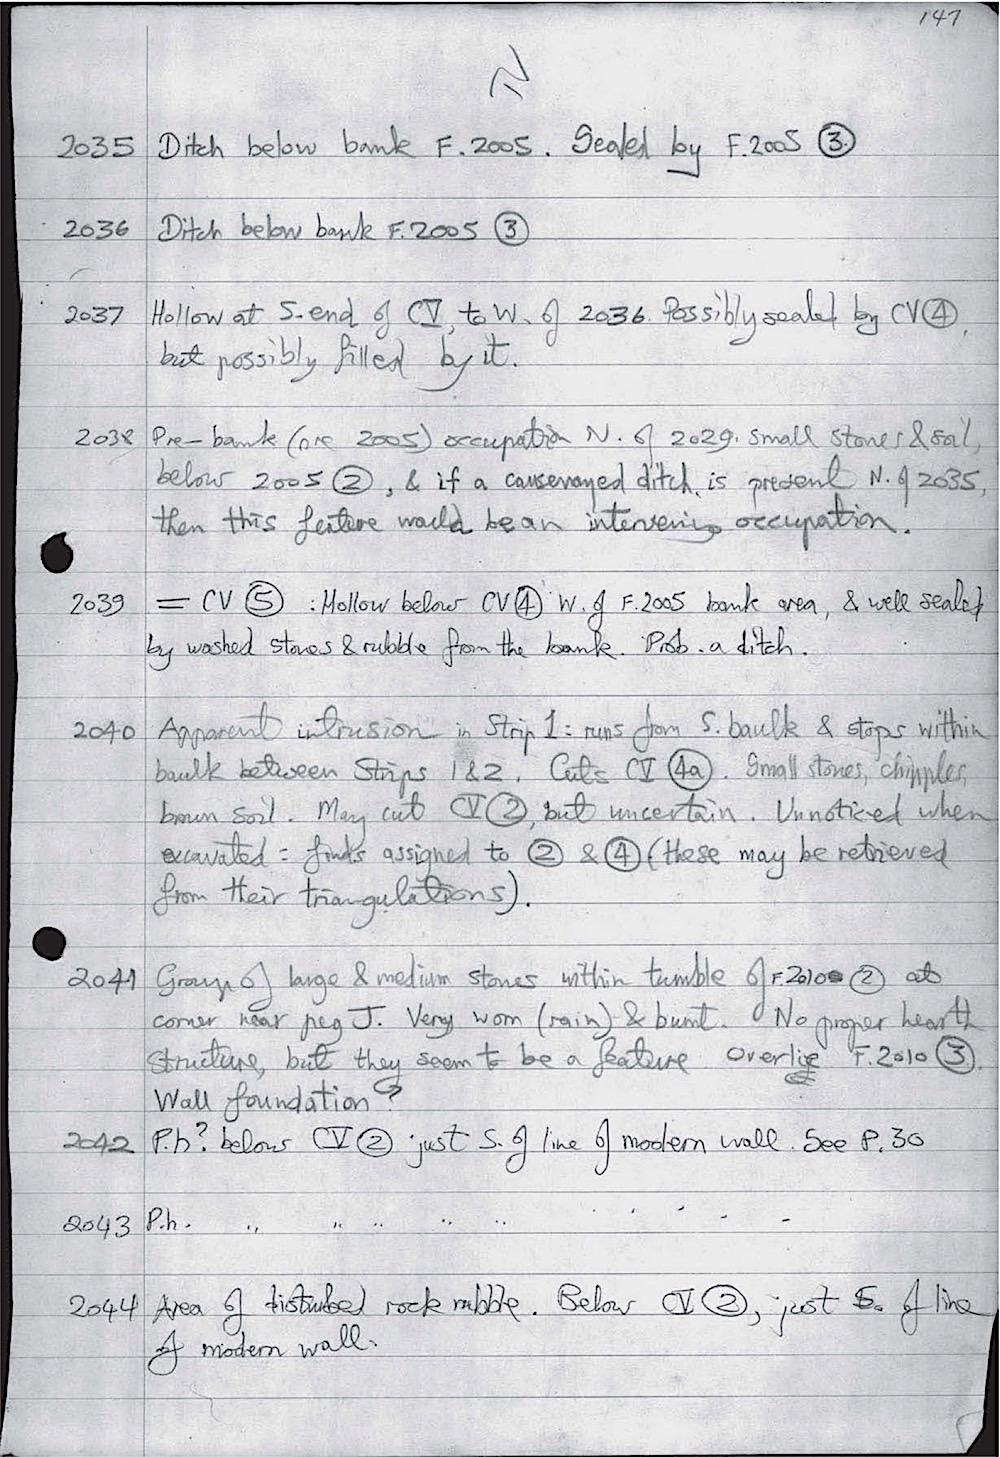 147
N
2035 Ditch below bank F.2005. Sealed by F.2005 ③
2036 Ditch below bank F.2005 ③
2037 Hollow at S.end of CV, to W. of 2036. Possibly sealed by CV④,
but possibly filled by it.
2038 Pre-bank (pre 2005) occupation N. of 2029. Small stones & soil,
below 2005 ②, & if a causewayed ditch is present N. of 2035,
then this feature would be an intervening occupation.
2039 = CV ⑤ : Hollow below CV④ W. of F.2005 bank area, & well sealed
by washed stones & rubble from the bank. Prob. a ditch.
2040 Apparent intrusion in Strip 1: runs from S. baulk & stops within
baulk between Strips 1 & 2. Cuts CV (4a). Small stones, chipples,
brown soil. May cut CV②, but uncertain. Unnoticed when
excavated = finds assigned to ② & ④ (these may be retrieved
from their triangulations).
2041 Group of large & medium stones within tumble of F.2010 ② at
corner near peg J. Very worn (rain) & burnt. No proper hearth
structure, but they seem to be a feature. Overlie F.2010 ③.
Wall foundation?
2042 P.h? below CV② just S. of line of modern wall. See P.30
2043 P.h. " " " " " " " " " "
2044 Area of disturbed rock rubble. Below CV②, just S. of line
of modern wall.